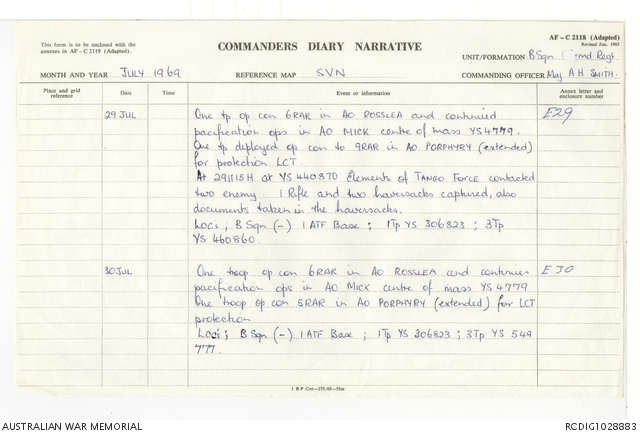 AF – C 2118 (Adapted)
Revised Jan. 1965
This form is to be enclosed with the
annexes in AF – C 2119 (Adapted)
COMMANDERS DIARY NARRATIVE
UNIT/FORMATION B Sqn Regt
MONTH AND YEAR JULY 1969
REFERENCE MAP SVN
COMMANDING OFFICER Maj A H SMITH.
Place and grid reference
Date
Time
Event or information
Annex letter and enclosure number
29 JUL
One tp op con 6RAR in AO ROSSLEA and continued
E29
pacification ops in AO MICK centre of mass YS 4779.
One tp deployed op con to 9RAR in AO PORPHYRY (extended)
for protection LCT.
At 291115H at YS 440870 Elements of TANGO FORCE contacted
two enemy. 1 Rifle and two haversacks captured, also
documents taken in the haversacks.
Locs; B Sqn (-) 1 ATF Base; 1Tp YS 306823; 3Tp
YS 460860.
30 JUL
One troop op con 6RAR in AO ROSSLEA and continues
E30
pacification ops in AO MICK centre of mass YS 4779
One troop op con 5RAR in AO PORPHYRY (extended) for LCT
protection
Locs; B Sqn (-) 1 ATF Base; 1Tp YS 306823; 3Tp YS 549
777.
AUSTRALIAN WAR MEMORIAL
RCDIG1028883